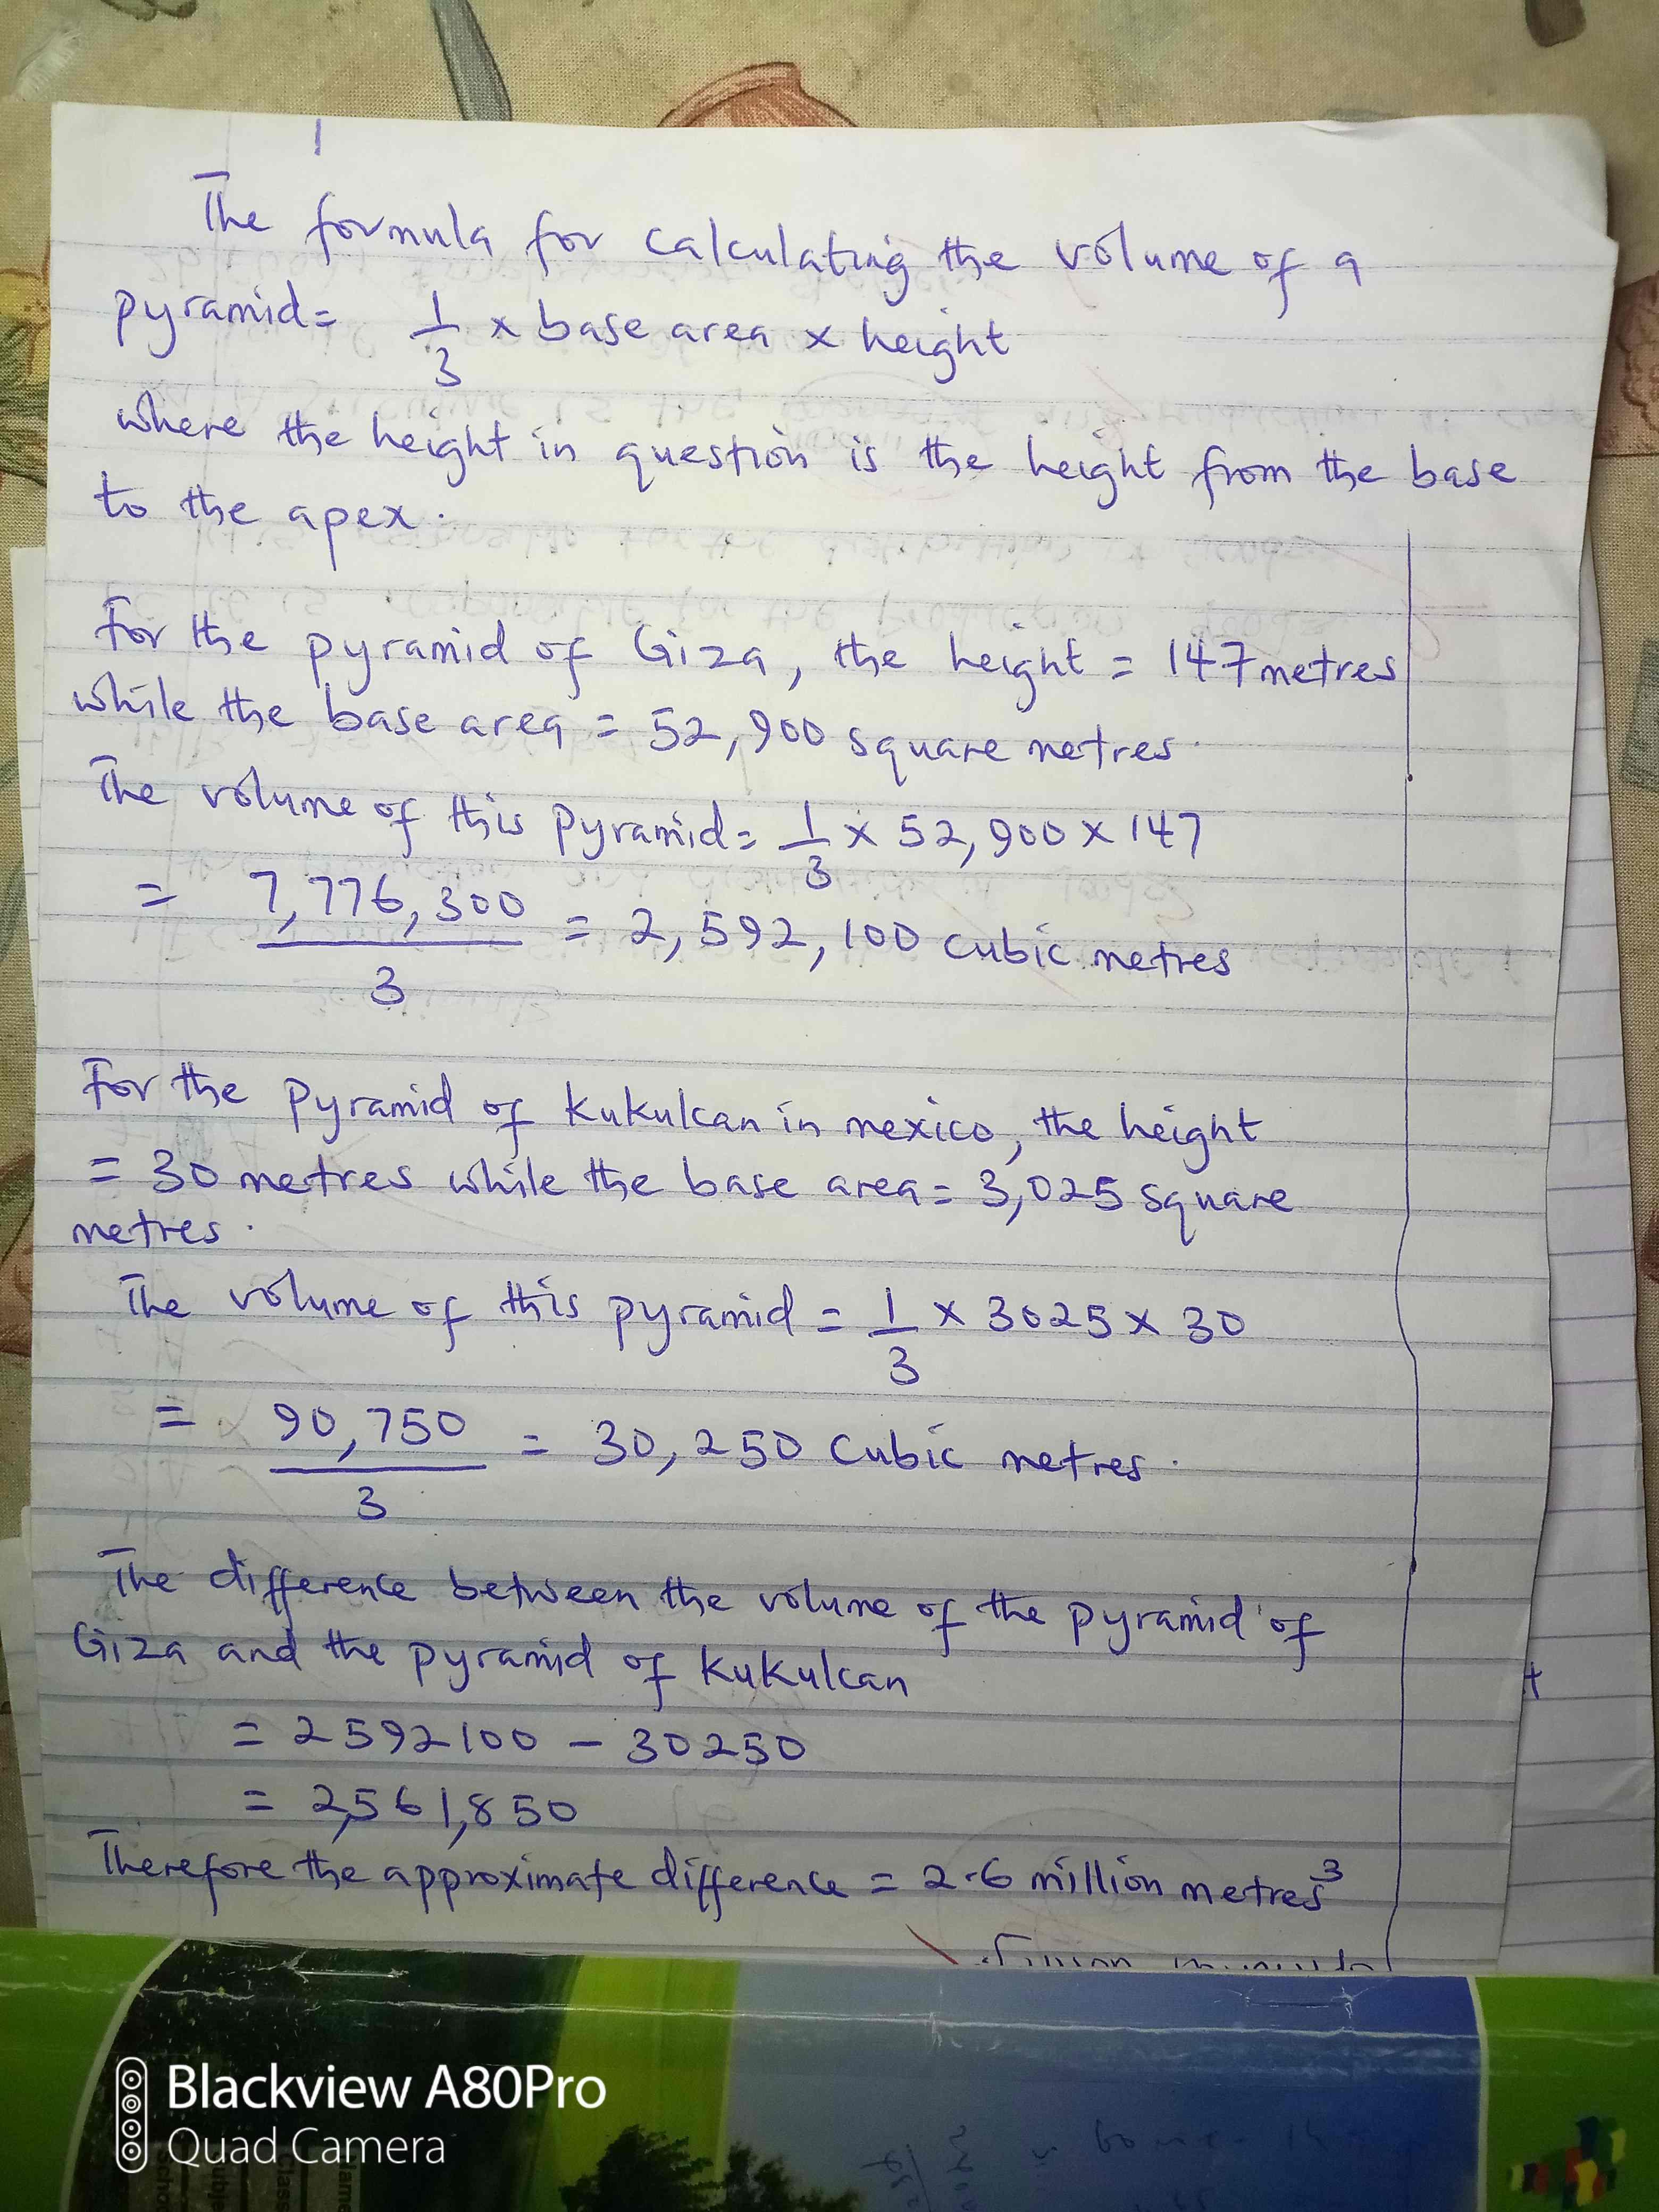 1
The formula for calculating the volume of a
pyramid = 1/3 x base area x height
where the height in question is the height from the base
to the apex.
For the pyramid of Giza, the height = 147 metres
while the base area = 52,900 square metres.
The volume of this pyramid = 1/3 x 52,900 x 147
= 7,776,300/3 = 2,592,100 cubic metres
For the pyramid of Kukulcan in mexico, the height
= 30 metres while the base area = 3,025 square
metres.
The volume of this pyramid = 1/3 x 3025 x 30
= 90,750/3 = 30,250 cubic metres.
The difference between the volume of the pyramid of
Giza and the pyramid of Kukulcan
= 2592100 - 30250
= 2,561,850
Therefore the approximate difference = 2.6 million metres³
Blackview A80Pro
Quad Camera